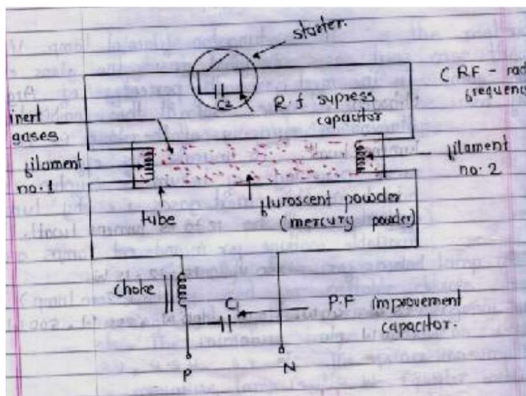 starter.
C2
R.f supress
capacitor
( RF - rad
frequenc
inert
gases
filament
no. 1
filament
no. 2
tube
fluroscent powder
(mercury powder)
Choke
C1
P.F improvement
capacitor.
P
N